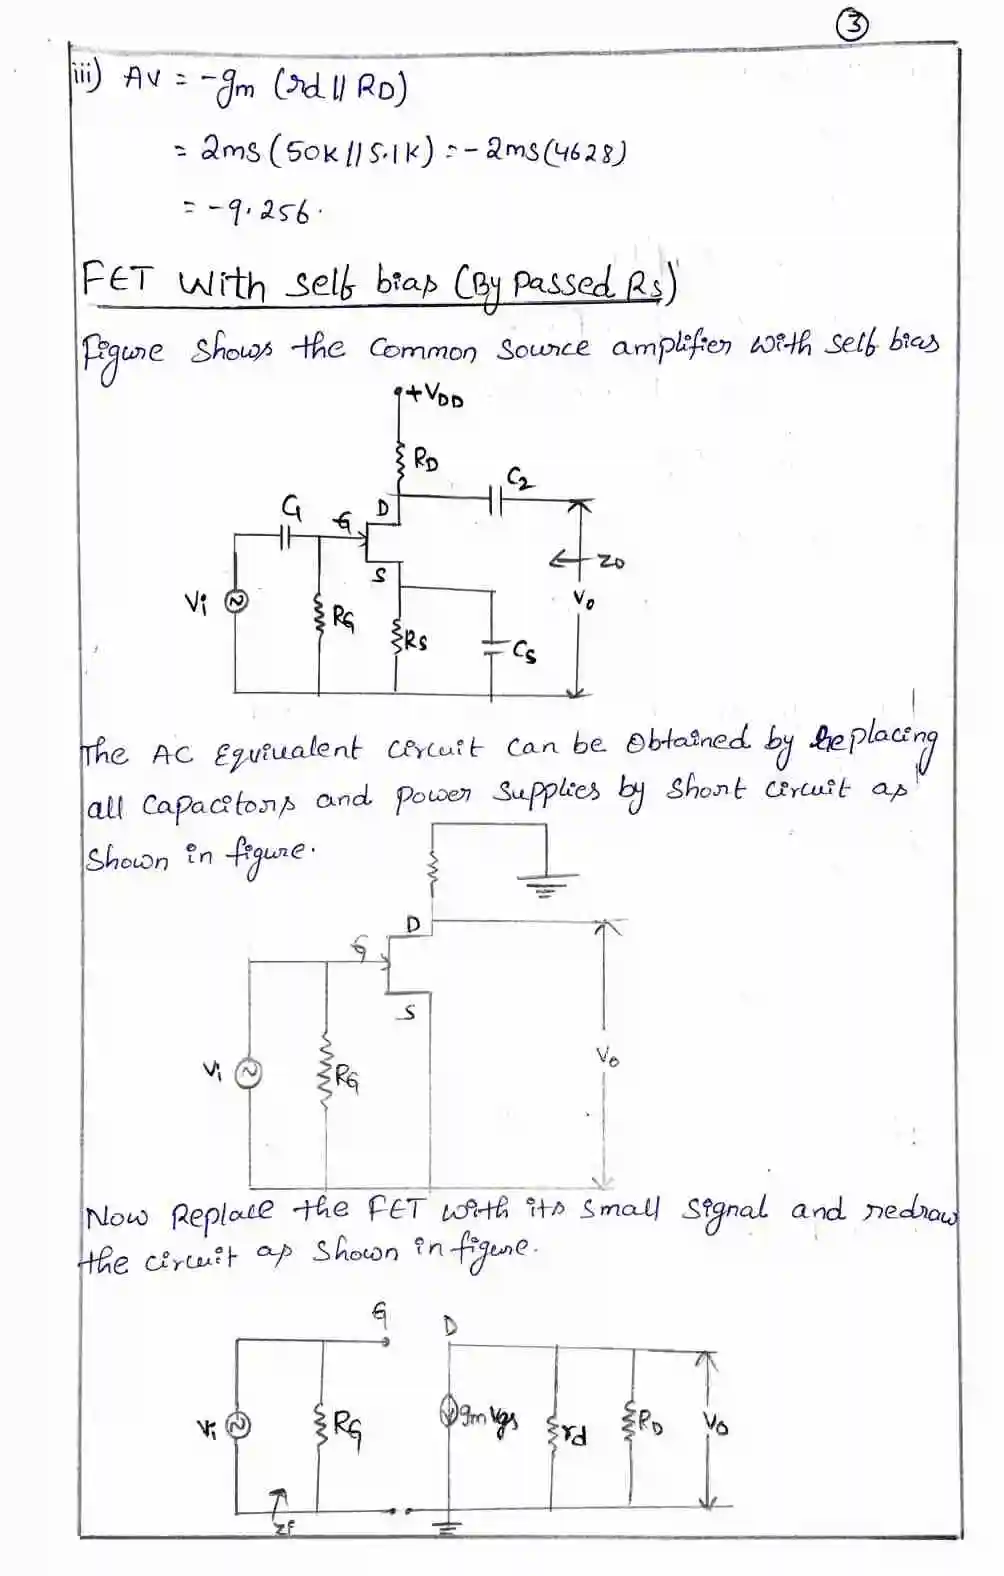 3
iii) AV = -gm (rd || RD)
= 2ms (50K || 5.1K) = -2ms (4628)
= -9.256.
FET With self bias (By passed Rs)
Figure shows the Common Source amplifier with self bias
+VDD
RD
C2
C1
G
D
S
Z0
Vi
RG
RS
CS
V0
The AC Equivalent circuit can be Obtained by Replacing
all Capacitors and power Supplies by Short circuit as
Shown in figure.
D
G
S
Vi
RG
V0
Now Replace the FET with its Small Signal and redraw
the circuit as Shown in figure.
G
D
Vi
RG
gm Vgs
rd
RD
V0